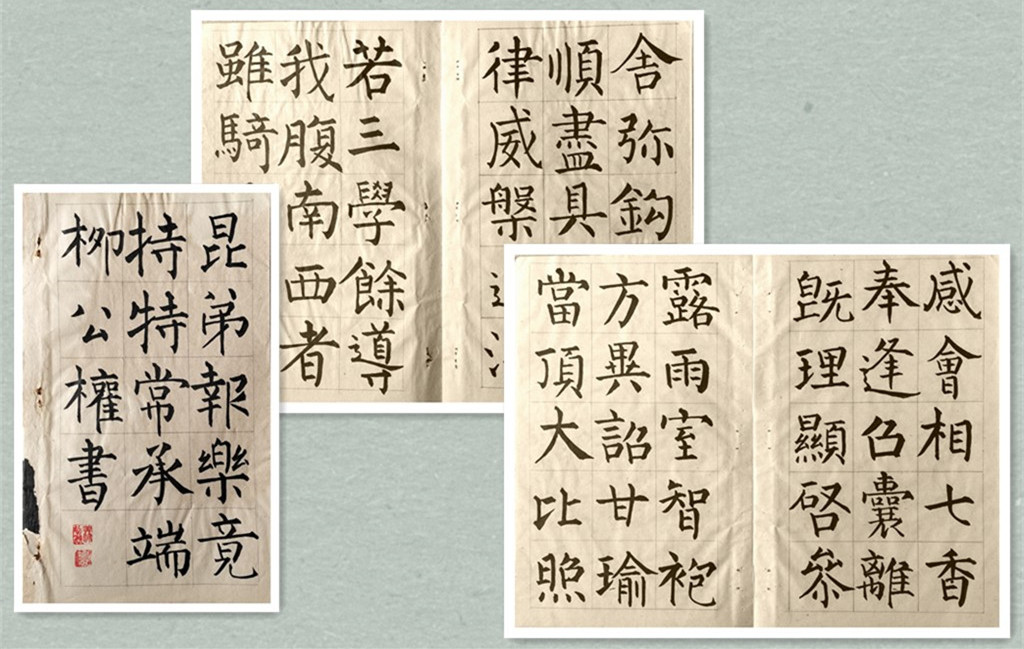 昆弟報樂竟
持特常承端
柳公權書
舍弥鈎
順盡具
律威槃
若三學餘導
我腹南西者
雖騎
感會相七香
奉逢召囊離
既理顯啓叅
露雨室智袍
方異詔甘瑜
當頂大比照